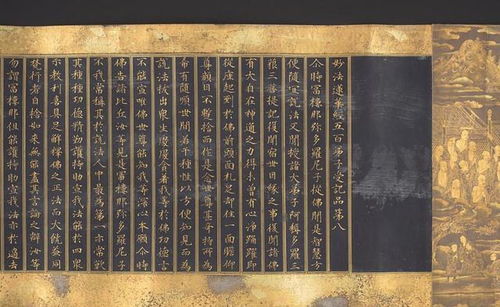 妙法蓮華經五百弟子受記品第八
尒時富樓那弥多羅尼子從佛聞是智慧方
便隨宜說法又聞授諸大弟子阿耨多羅三
藐三菩提記復聞宿世因緣之事復聞諸佛
有大自在神通之力得未曾有心淨踊躍即
從座起到於佛前頭面礼足却住一面瞻仰
尊顏目不暫捨而作是念世尊甚奇特所為
希有隨順世間若干種性以方便知見而為
說法拔出眾生處處貪著我等於佛功德言
不能宣唯佛世尊能知我等深心本願尒時
佛告諸比丘汝等見是富樓那弥多羅尼子
不我常稱其於說法人中最為第一亦常歎
其種種功德精勤護持助宣我法能於四眾
示教利喜具足解釋佛之正法而大饒益同
梵行者自捨如來無能盡其言論之辯汝等
勿謂富樓那但能護持助宣我法亦於過去